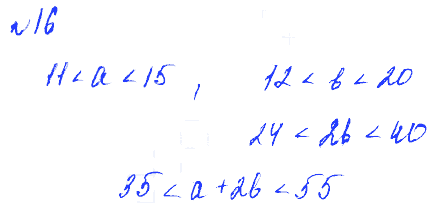 №16
11 < a < 15 , 12 < b < 20
24 < 2b < 40
35 < a + 2b < 55